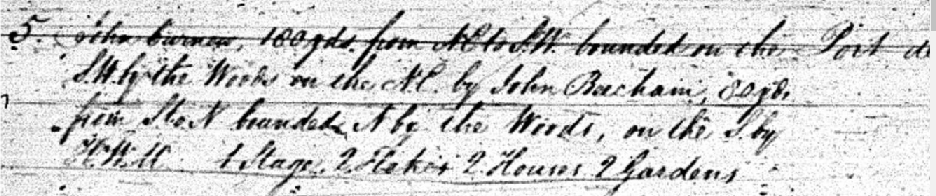 5. John Curnew, 180 yds. from NE to S.W. bounded on the Port de
S.W. by the Woods on the N.E. by John Beecham, 80 yds.
from S to N bounded N by the Woods, on the S. by
H.W.M 1 Stage, 2 Flakes 2 Houses 2 Gardens